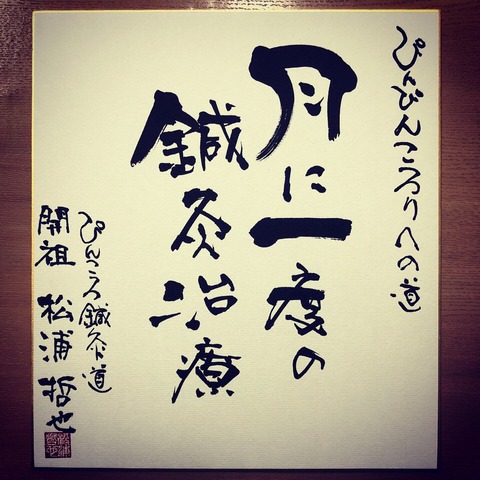 ぴんぴんころりへの道
月に一度の
鍼灸治療
ぴんころ鍼灸道
開祖 松浦 哲也